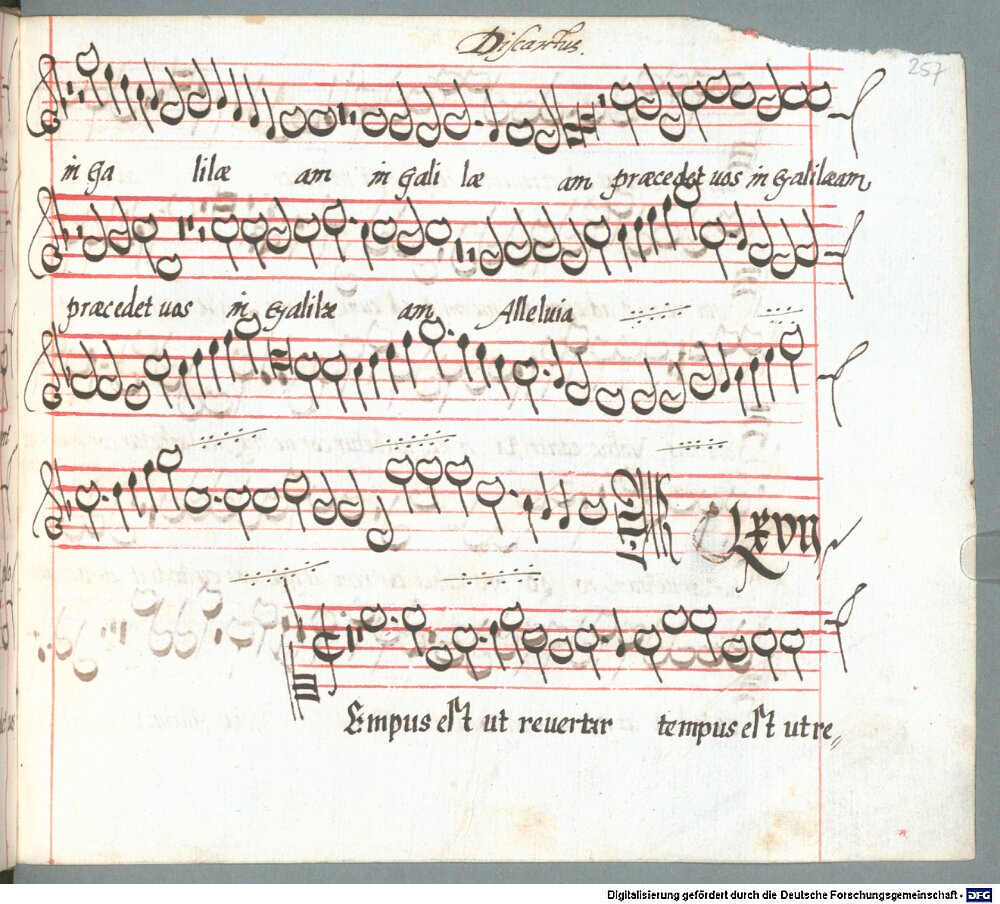 Discantus.
257
in Ga lilæ am in Gali læ am præcedet uos in Galilæam
præcedet uos in Galilæ am Alleluia
LXVII
Empus est ut reuertar tempus est ut re
Digitalisierung gefördert durch die Deutsche Forschungsgemeinschaft - DFG